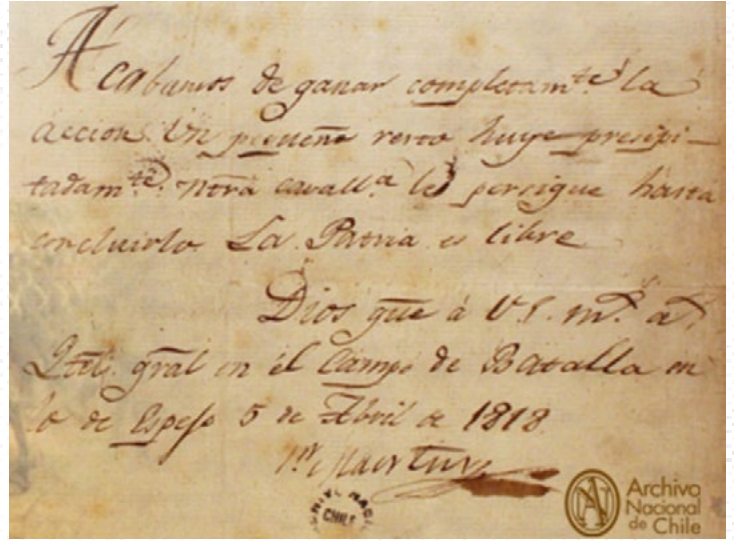 Acabamos de ganar completam.te la
accion. Un pequeño resto huye presipi-
tadam.te. Ntra cavall.a le persigue hasta
concluirlo. La Patria es libre
Dios gue à V.S. m.s a.s
Qtel. gral en el Campo de Batalla en
lo de Espejo 5 de Abril de 1818
CHILE
Archivo
Nacional
de Chile